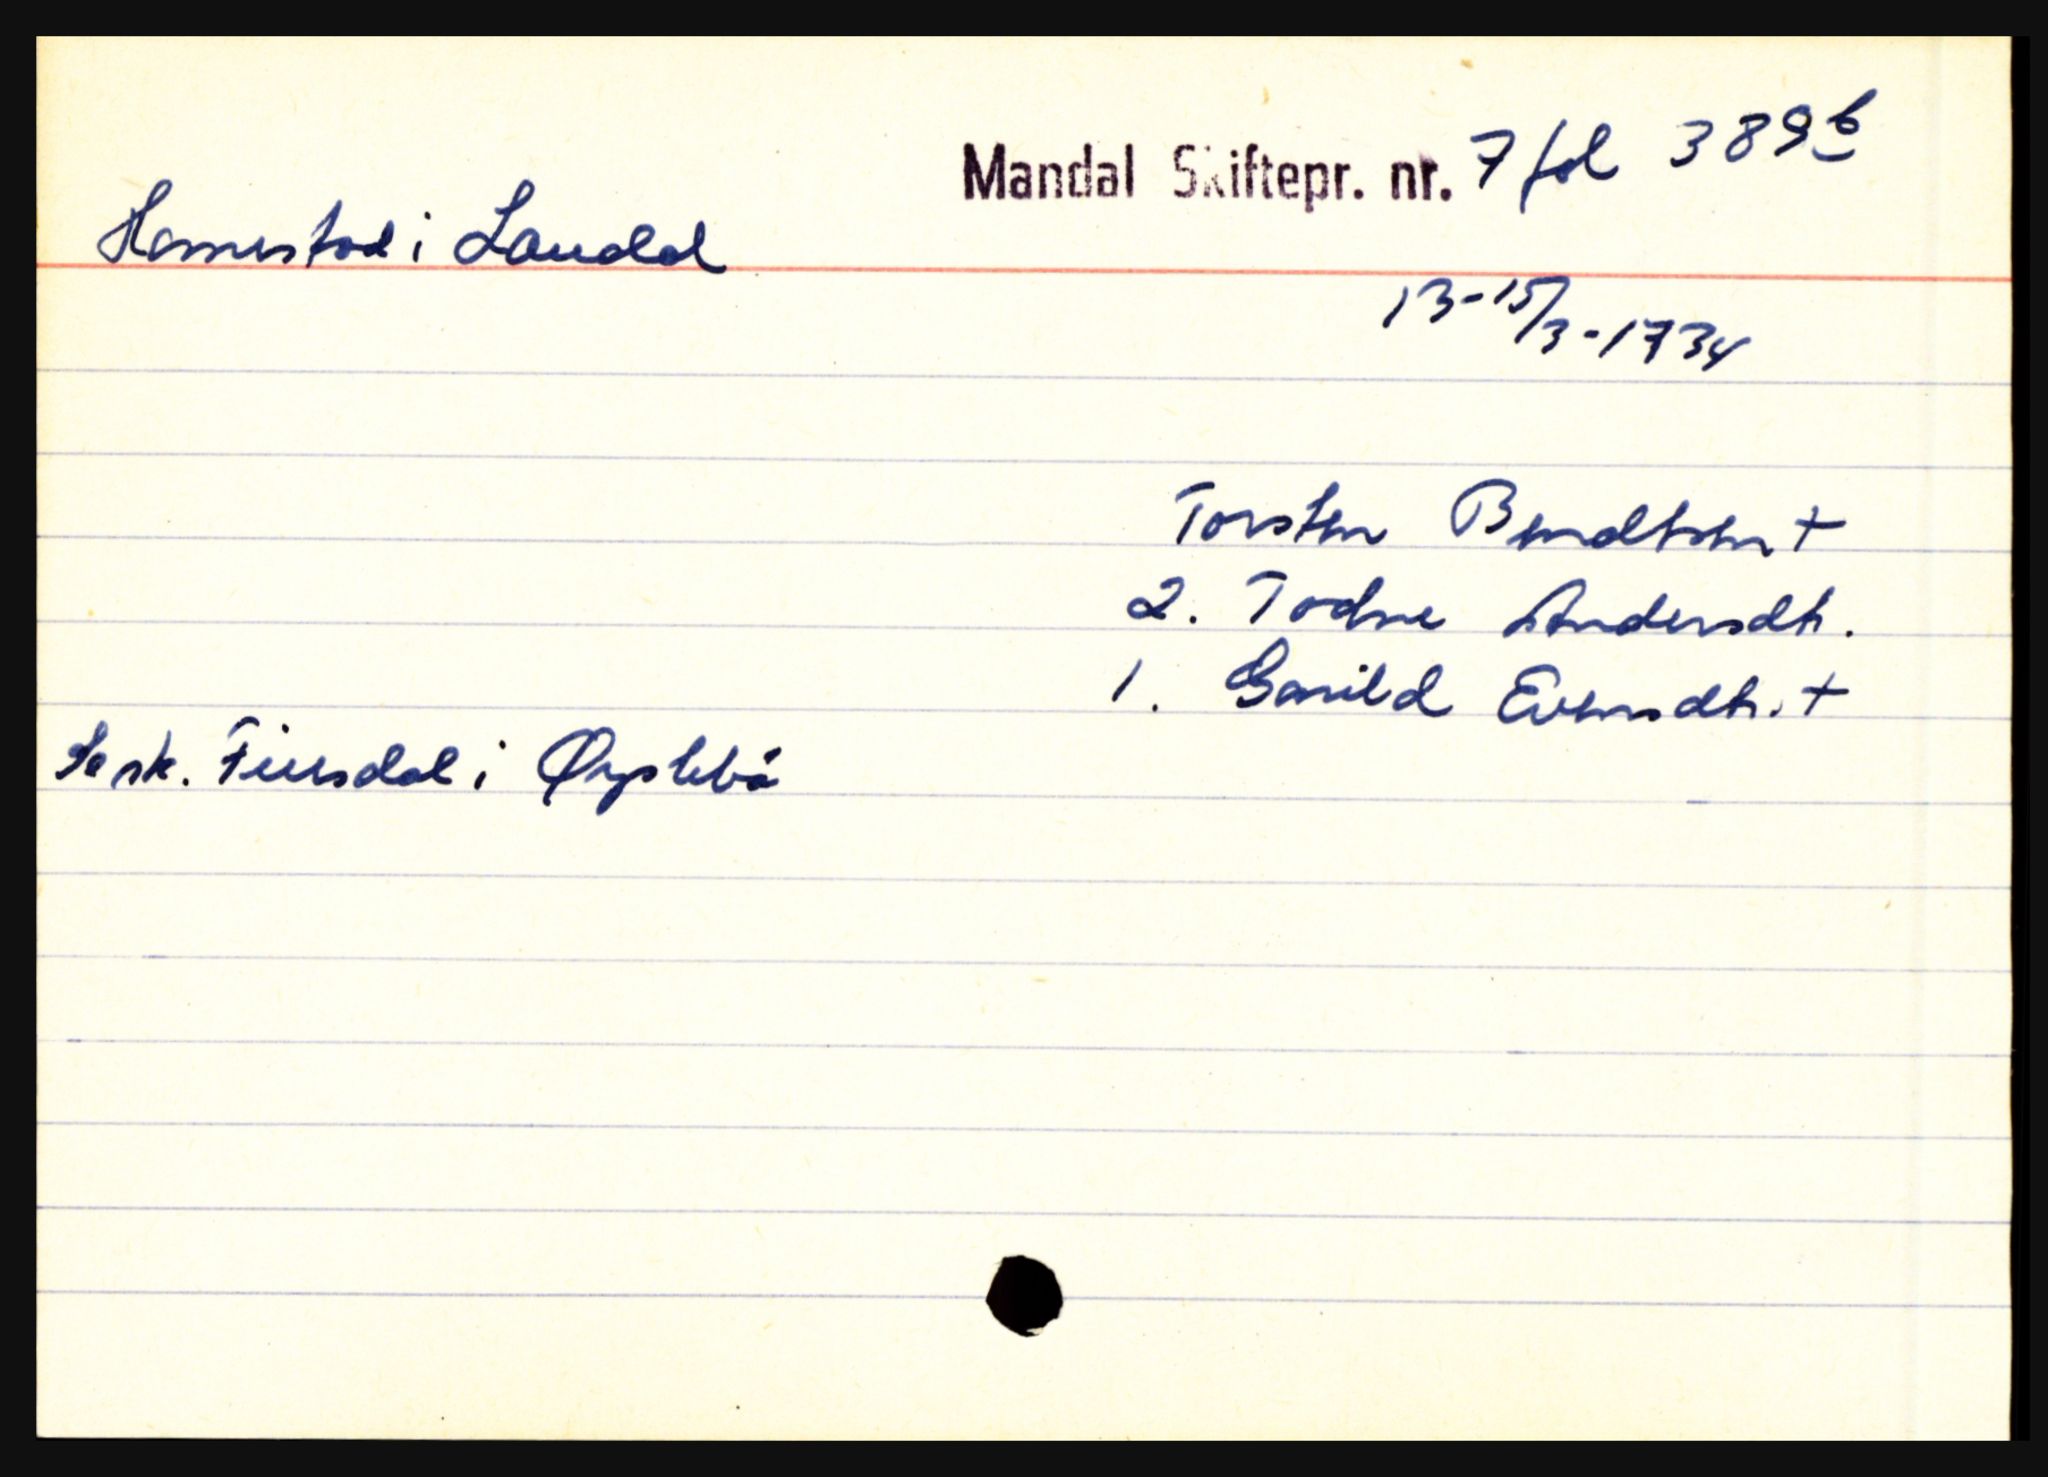 Mandal Skiftepr. nr. 7 fol 389b
Hamestad i Laudal
13-15/3-1734
Torsten Bendtsen +
2. Todne Andersdtr.
1. Gunild Evensdtr. +
Se sk. Fiersdal i Øyslebø